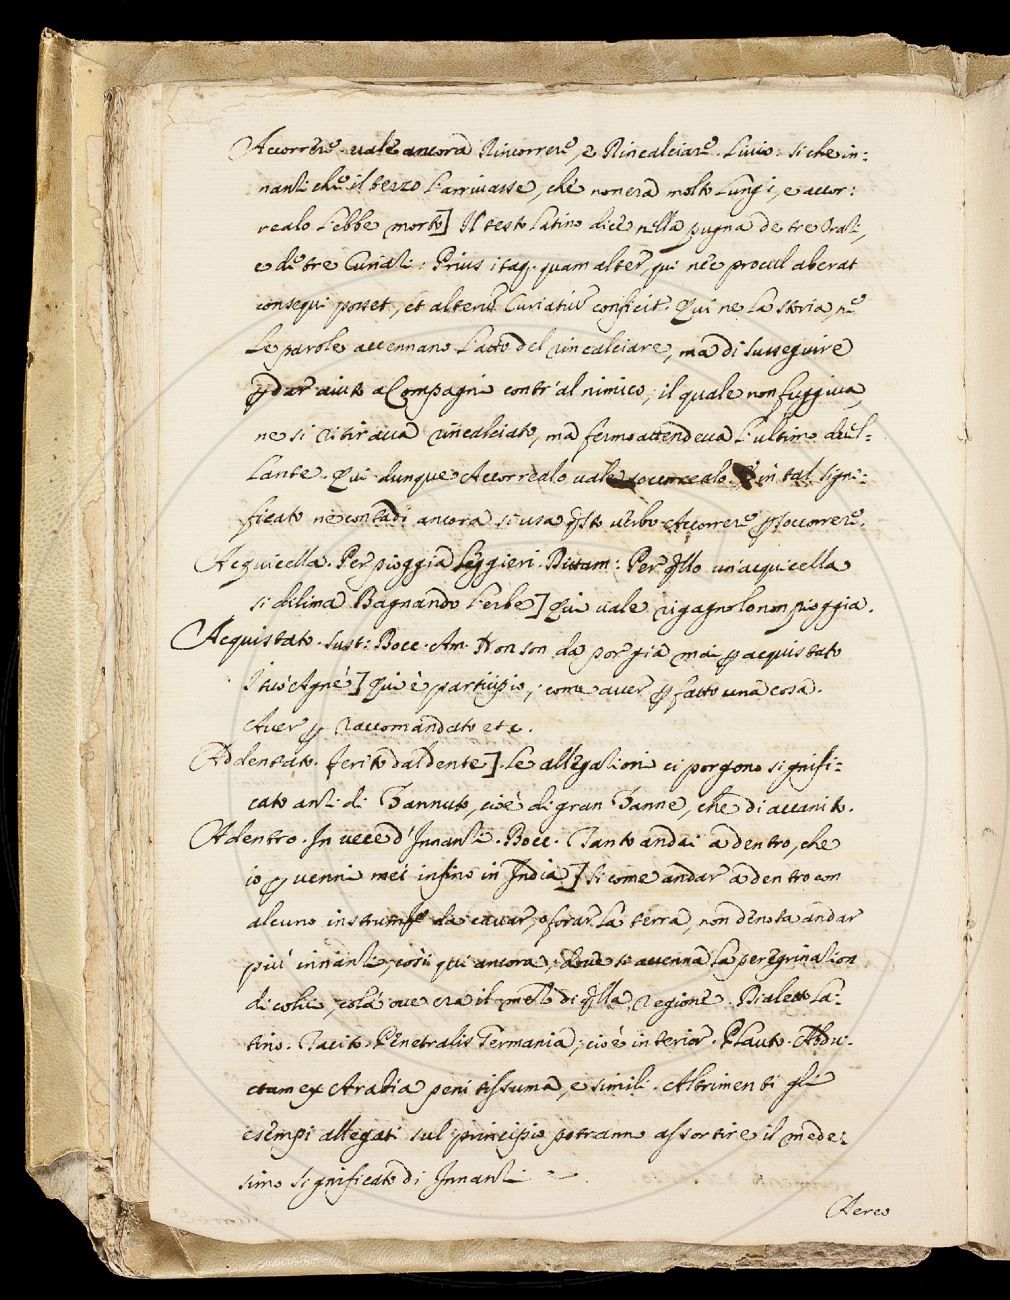 Accorrere. vale ancora Rincorrere, e Rincalciare. Livio: Si che in=
nanzi che il terzo l'arrivasse, che non era molto lungi, e accor=
realo l'ebbe morto] Il testo Latino dice nella pugna de tre Orazi,
e di tre Curiazi: Prius itaq. quam alter, qui nec procul aberat
consequi posset, et alterũ Curiatiũ conficit. Qui ne la storia, ne
le parole accennano l'atto del rincalciare, ma di susseguire
ꝑ dar aiuto a Compagni contr'al nimico; il quale non fuggiva,
ne si ritirava rincalciato, ma fermo attendeva l'ultimo duel=
lante. Qui dunque Accorrealo vale soccorrealo. E in tal signi=
ficato ne contadi ancora si usa q̃sto verbo Accorrere ꝑ soccorrere.
Acquicella. Per pioggia leggieri. Dittam: Per q̃llo un'acquicella
si dilima Bagnando l'erbe] Qui vale rigagnolo non pioggia.
Acquistato. Sust: Bocc. Am. Non son da por già mai ꝑ acquistato
I tuò Agne] Qui è participio; come aver ꝑ fatto una cosa.
Aver ꝑ raccomandato etc.
Addentato. ferito dal dente]. Le allegazioni ci porgono signifi=
cato anzi di Zannuto, cioè di gran Zanne, che di accanito.
Adentro. In vece d'Innanzi. Bocc. Tanto andai adentro, che
io ꝑvenni mei infino in India] Si come andar adentro con
alcuno instrumẽto da cavar, o forar la terra, non denota andar
più innanzi, così qui ancora, dove si accenna la peregrinazion
di colui, colà ove era il mezzo di q̃lla regione. Dialetto La=
tino. Tacito. Penetralis Germania, cioè interior. Plauto. Abdu=
ctam ex Arabia penitissuma, e simili. Altrimenti gli
esempi allegati sul principio potranno assortire il mede=
simo significato di Innanzi
Aereo